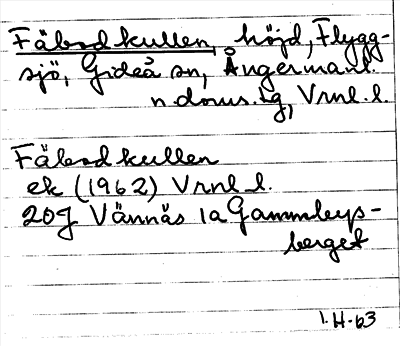 Fäbodkullen, höjd, Flygg-
sjö, Gideå sn, Ångermanl.
n doms.lg, Vrnl. l.
Fäbodkullen
ek (1962) Vrnl l.
20J Vännäs 1a Gammleys-
berget
1.H.63